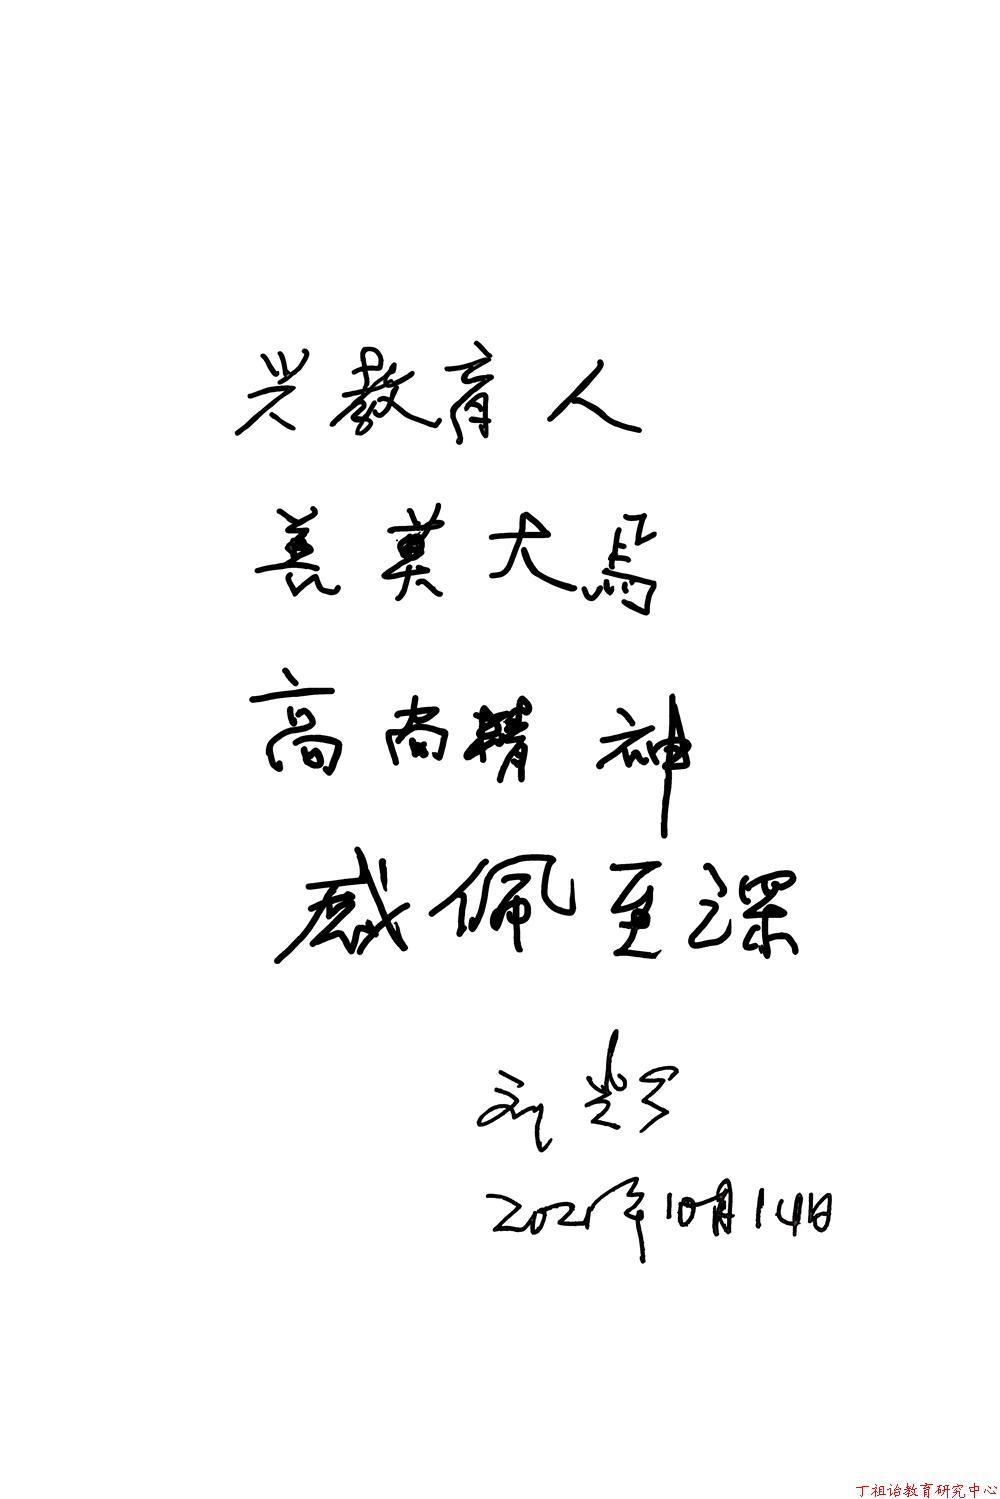 兴教育人
善莫大焉
高尚精神
感佩至深
刘
2021年10月14日
丁祖诒教育研究中心